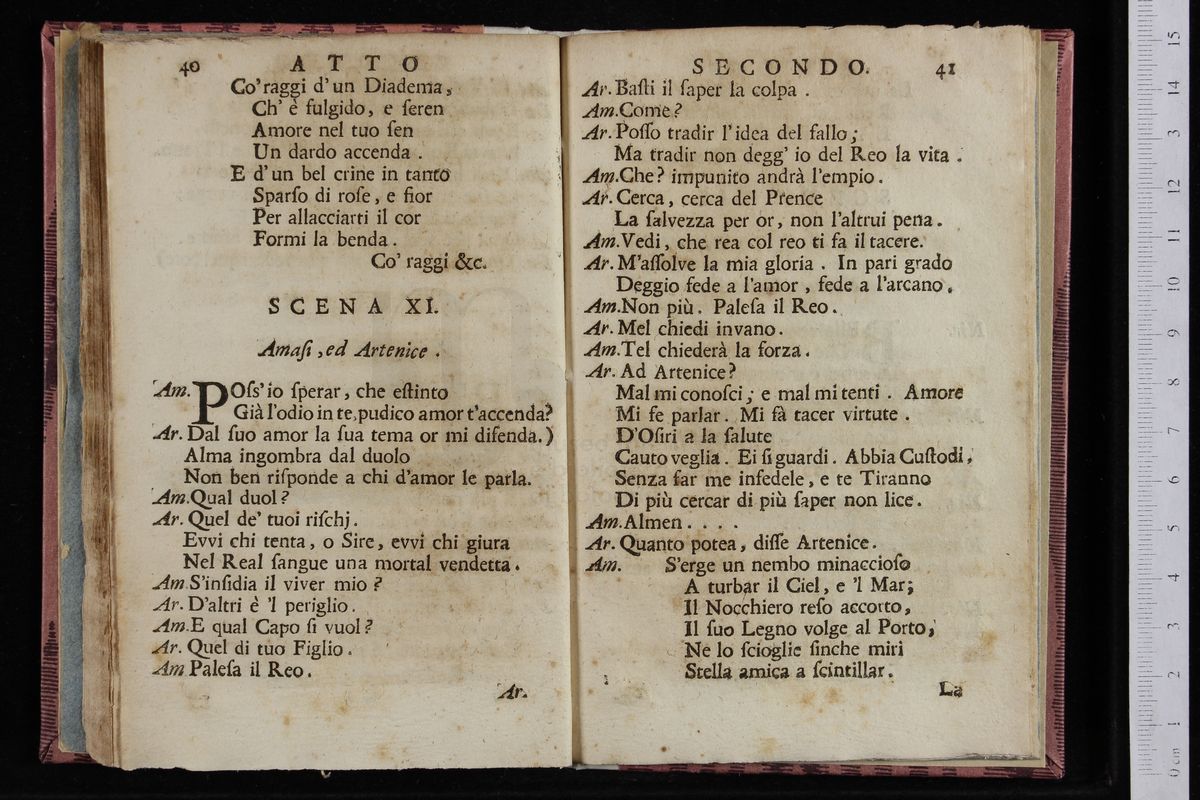 40 ATTO
Co'raggi d'un Diadema,
Ch' è fulgido, e ſeren
Amore nel tuo ſen
Un dardo accenda .
E d'un bel crine in tanto
Sparſo di roſe, e fior
Per allacciarti il cor
Formi la benda .
Co' raggi &c.
SCENA XI.
Amaſi , ed Artenice .
Am. POſs'io ſperar, che eſtinto
Già l'odio in te, pudico amor t'accenda?
Ar. Dal ſuo amor la ſua tema or mi difenda.)
Alma ingombra dal duolo
Non ben riſponde a chi d'amor le parla.
Am. Qual duol?
Ar. Quel de' tuoi riſchj.
Evvi chi tenta, o Sire, evvi chi giura
Nel Real ſangue una mortal vendetta.
Am. S'inſidia il viver mio?
Ar. D'altri è 'l periglio.
Am. E qual Capo ſi vuol?
Ar. Quel di tuo Figlio.
Am Paleſa il Reo.
Ar.
SECONDO. 41
Ar. Baſti il ſaper la colpa .
Am. Come?
Ar. Poſſo tradir l'idea del fallo;
Ma tradir non degg' io del Reo la vita .
Am. Che? impunito andrà l'empio.
Ar. Cerca, cerca del Prence
La ſalvezza per or, non l'altrui pena.
Am. Vedi, che rea col reo ti fa il tacere.
Ar. M'aſſolve la mia gloria . In pari grado
Deggio fede a l'amor , fede a l'arcano.
Am. Non più. Paleſa il Reo.
Ar. Mel chiedi invano.
Am. Tel chiederà la forza.
Ar. Ad Artenice?
Mal mi conoſci; e mal mi tenti . Amore
Mi fe parlar. Mi fà tacer virtute .
D'Oſiri a la ſalute
Cauto veglia. Ei ſi guardi. Abbia Cuſtodi,
Senza far me infedele, e te Tiranno
Di più cercar di più ſaper non lice.
Am. Almen . . . .
Ar. Quanto potea, diſſe Artenice.
Am. S'erge un nembo minaccioſo
A turbar il Ciel, e 'l Mar;
Il Nocchiero reſo accorto,
Il ſuo Legno volge al Porto,
Ne lo ſcioglie ſinche miri
Stella amica a ſcintillar.
La
0 cm 1 2 3 4 5 6 7 8 9 10 11 12 13 14 15